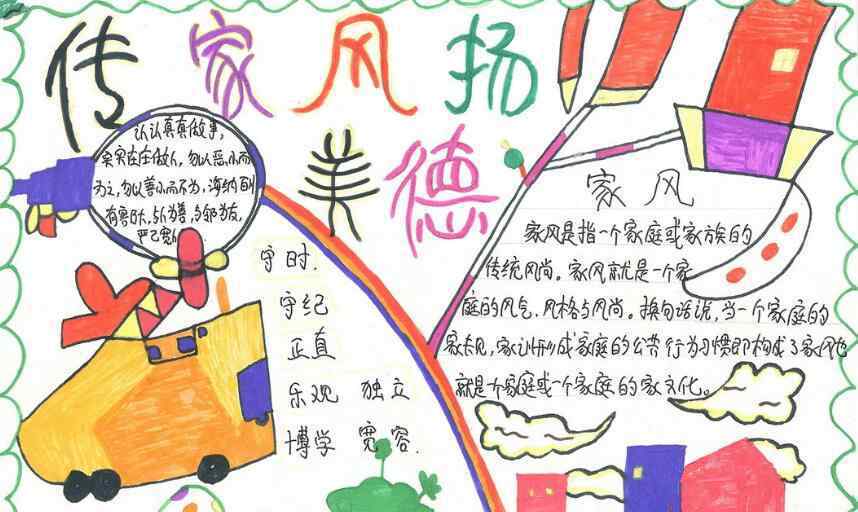 传家风扬
美德
认认真真做事,
实实在在做人,勿以恶小而
为之,勿以善小而不为,海纳百川
有容乃大,与人为善,与邻为友,
严己宽
守时.
守纪
正直
乐观 独立
博学 宽容.
家风
家风是指一个家庭或家族的
传统风尚。家风就是一个家
庭的风气、风格与风尚。换句话说,当一个家庭的
家规,家训形成家庭的公共行为习惯即构成了家风也
就是一个家庭或一个家庭的家文化。